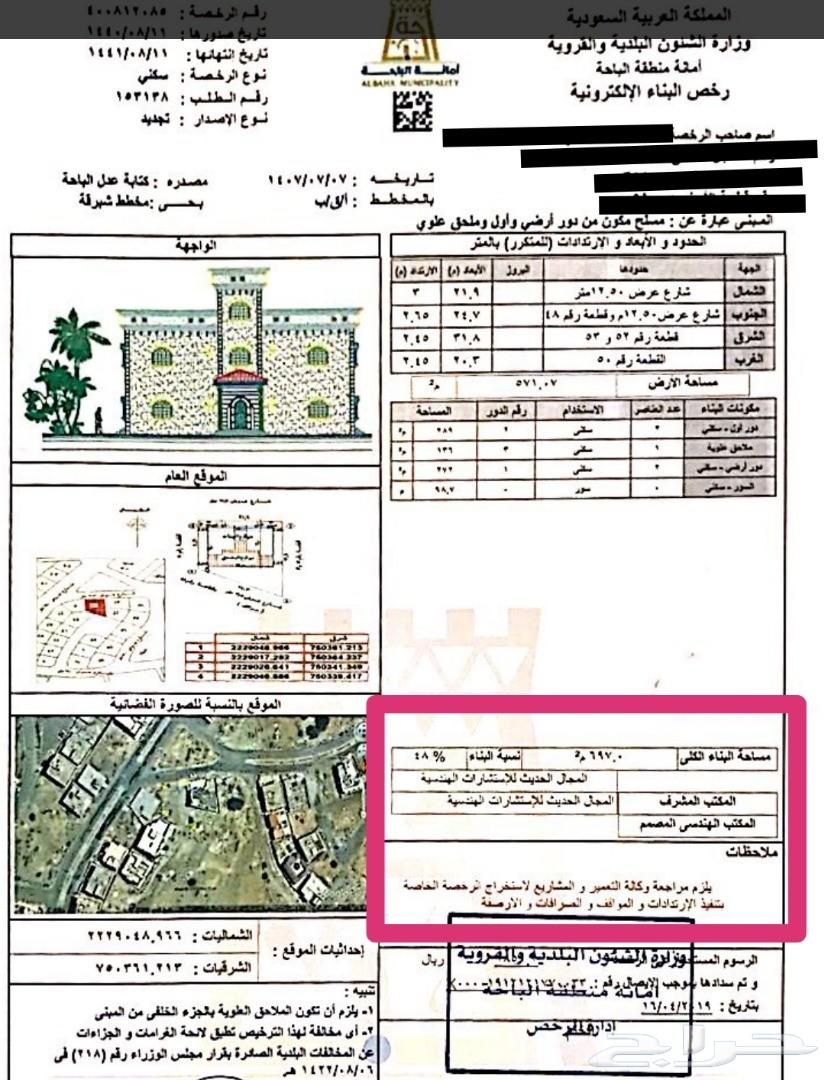 المملكة العربية السعودية
وزارة الشئون البلدية والقروية
أمانة منطقة الباحة
رخص البناء الإلكترونية
رقم الرخصة : ٤٠٠٨١٢٠٨٥
تاريخ صدورها : ١٤٤٠/٠٨/١١
تاريخ إنتهائها : ١٤٤١/٠٨/١١
نوع الرخصة : سكني
رقم الطلب : ١٥٣١٣٨
نوع الإصدار : تجديد
أمانة الباحة
ALBAHA MUNICIPALITY
اسم صاحب الرخصة
تاريخه : ١٤٠٧/٠٧/٠٧ مصدره : كتابة عدل الباحة
بالمخطط : أ/ق/ب بحي : مخطط شبرقة
المبنى عبارة عن : مسلح مكون من دور أرضي وأول وملحق علوي
الحدود و الأبعاد و الإرتدادات (للمتكرر) بالمتر
الجهة حدودها البروز الأبعاد (م) الارتداد (م)
الشمال شارع عرض ١٢.٥٠متر ٢١,٩ ٣
الجنوب شارع عرض ١٢.٥٠م وقطعة رقم ٤٨ ٢٤,٧ ٢,٦٥
الشرق قطعة رقم ٥٢ و ٥٣ ٣١,٨ ٢,٤٥
الغرب القطعة رقم ٥٠ ٢٠,٣ ٢,٤٥
مساحة الأرض ٥٧١,٠٧ م٢
مكونات البناء عدد العناصر الاستخدام رقم الدور المساحة
دور أول - سكني ٢ سكني ٢ ٢٨٩ م٢
ملاحق علوية ١ سكني ٣ ١٣٦ م٢
دور أرضي - سكني ٢ سكني ١ ٢٧٢ م٢
السور - سكني ٠ سور - ٩٨,٧ م
الواجهة
الموقع العام
شمال شرق
1 2229048.966 750361.213
2 2229017.292 750364.337
3 2229028.641 750341.349
4 2229048.886 750339.417
الموقع بالنسبة للصورة الفضائية
مساحة البناء الكلي ٦٩٧,٠ م٢ نسبة البناء ٤٨ %
المجال الحديث للإستشارات الهندسية
المكتب المشرف المجال الحديث للإستشارات الهندسية
المكتب الهندسى المصمم
ملاحظات
يلزم مراجعة وكالة التعمير و المشاريع لاستخراج الرخصة الخاصة
بتنفيذ الإرتدادات و المواقف و السرافات و الأرصفة
إحداثيات الموقع :
الشماليات : ٢٢٢٩٠٤٨,٩٦٦
الشرقيات : ٧٥٠٣٦١,٢١٣
تنبيه :
١- يلزم أن تكون الملاحق العلوية بالجزء الخلفي من المبنى
٢- أى مخالفة لهذا الترخيص تطبق لائحة الغرامات و الجزاءات
عن المخالفات البلدية الصادرة بقرار مجلس الوزراء رقم (٢١٨) فى
١٤٢٢/٠٨/٠٦ هـ
الرسوم ريال
و تم سدادها بموجب الايصال رقم :
بتاريخ : ١٦/٠٤/٢٠١٩
وزارة الشئون البلدية والقروية
أمانة منطقة الباحة
إدارة الرخص
حراج